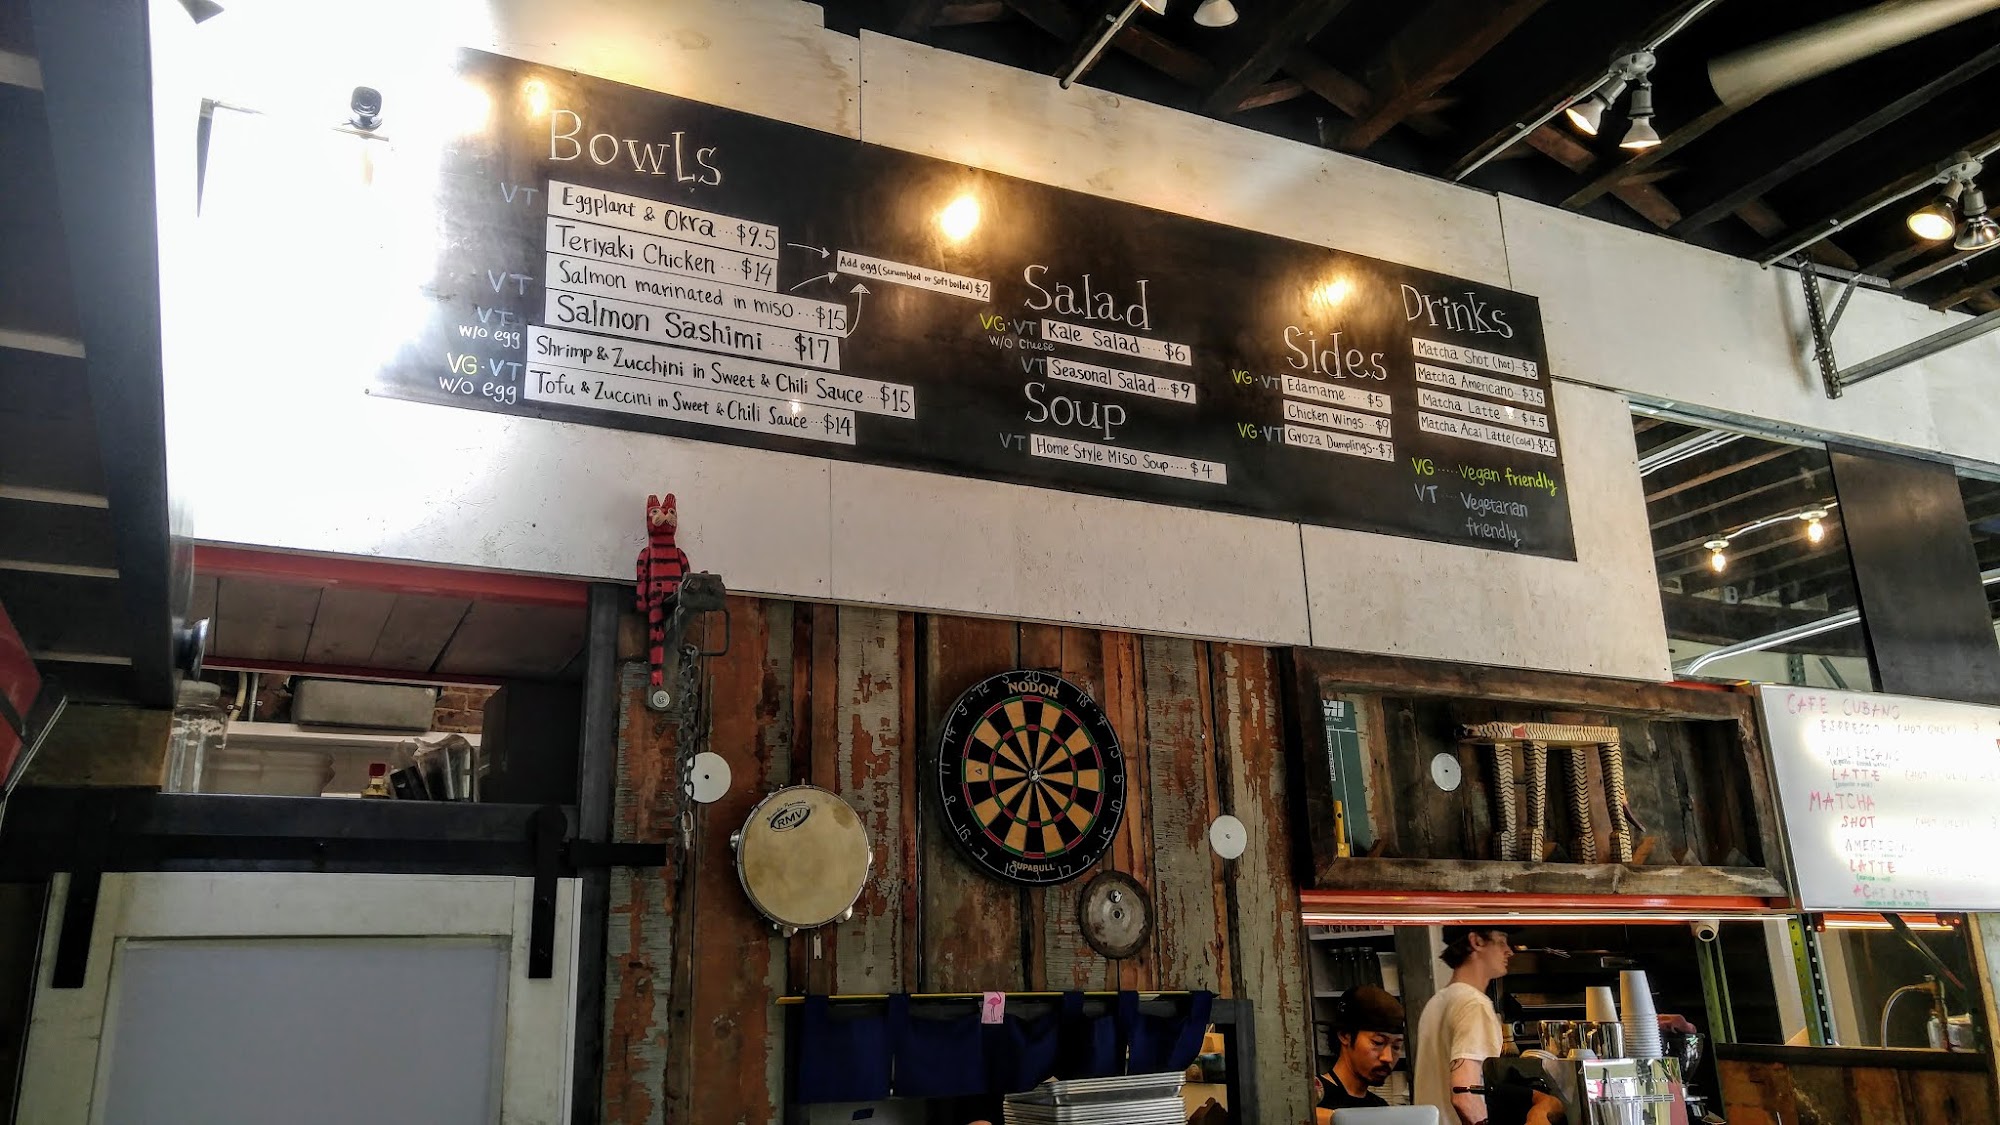 Bowls
VT Eggplant & Okra $9.5
Teriyaki Chicken $14
VT Salmon marinated in miso $15
VT w/o egg Salmon Sashimi $17
Shrimp & Zucchini in Sweet & Chili Sauce $15
VG·VT w/o egg Tofu & Zuccini in Sweet & Chili Sauce $14
Add egg (Scrumbled or Soft boiled) $2
Salad
VG·VT w/o Cheese Kale Salad $6
VT Seasonal Salad $9
Soup
VT Home Style Miso Soup $4
Sides
VG·VT Edamame $5
Chicken Wings $9
VG·VT Gyoza Dumplings $7
Drinks
Matcha Shot (hot) $3
Matcha Americano $3.5
Matcha Latte $4.5
Matcha Acai Latte (cold) $5.5
VG Vegan friendly
VT Vegetarian
friendly
RMV
NODOR
20
18
4
13
6
15
2
17
19
7
16
8
11
14
9
12
5
SUPABULL
CAFE CUBANO
ESPRESSO
LATTE
MATCHA
SHOT
LATTE